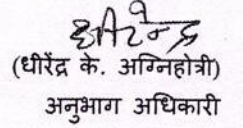 धीरेन्द्र
(धीरेंद्र के. अग्निहोत्री)
अनुभाग अधिकारी